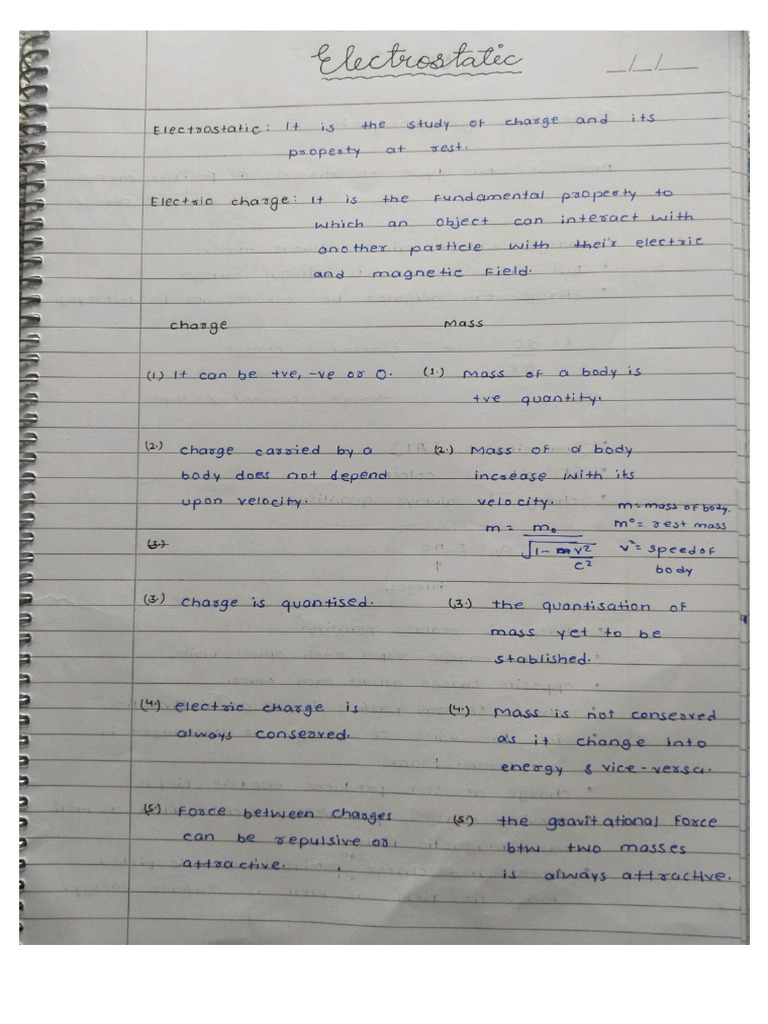 Electrostatic
_/_/__
Electrostatic: It is the study of charge and its
property at rest.
Electric charge: It is the fundamental property to
which an object can interact with
another particle with their electric
and magnetic field.
charge
Mass
(1) It can be +ve, -ve or 0.
(1.) Mass of a body is
+ve quantity.
(2.) charge carried by a
body does not depend
upon velocity.
(2.) Mass of a body
increase with its
velocity.
m = m₀ / √(1 - v²/c²)
m = mass of body.
m° = rest mass
v² = speed of
body
(3.)
(3.) charge is quantised.
(3.) the quantisation of
mass yet to be
stablished.
(4.) electric charge is
always conserved.
(4.) Mass is not conserved
as it change into
energy & vice-versa.
(5.) Force between charges
can be repulsive or
attractive.
(5.) the gravitational force
btw two masses
is always attractive.